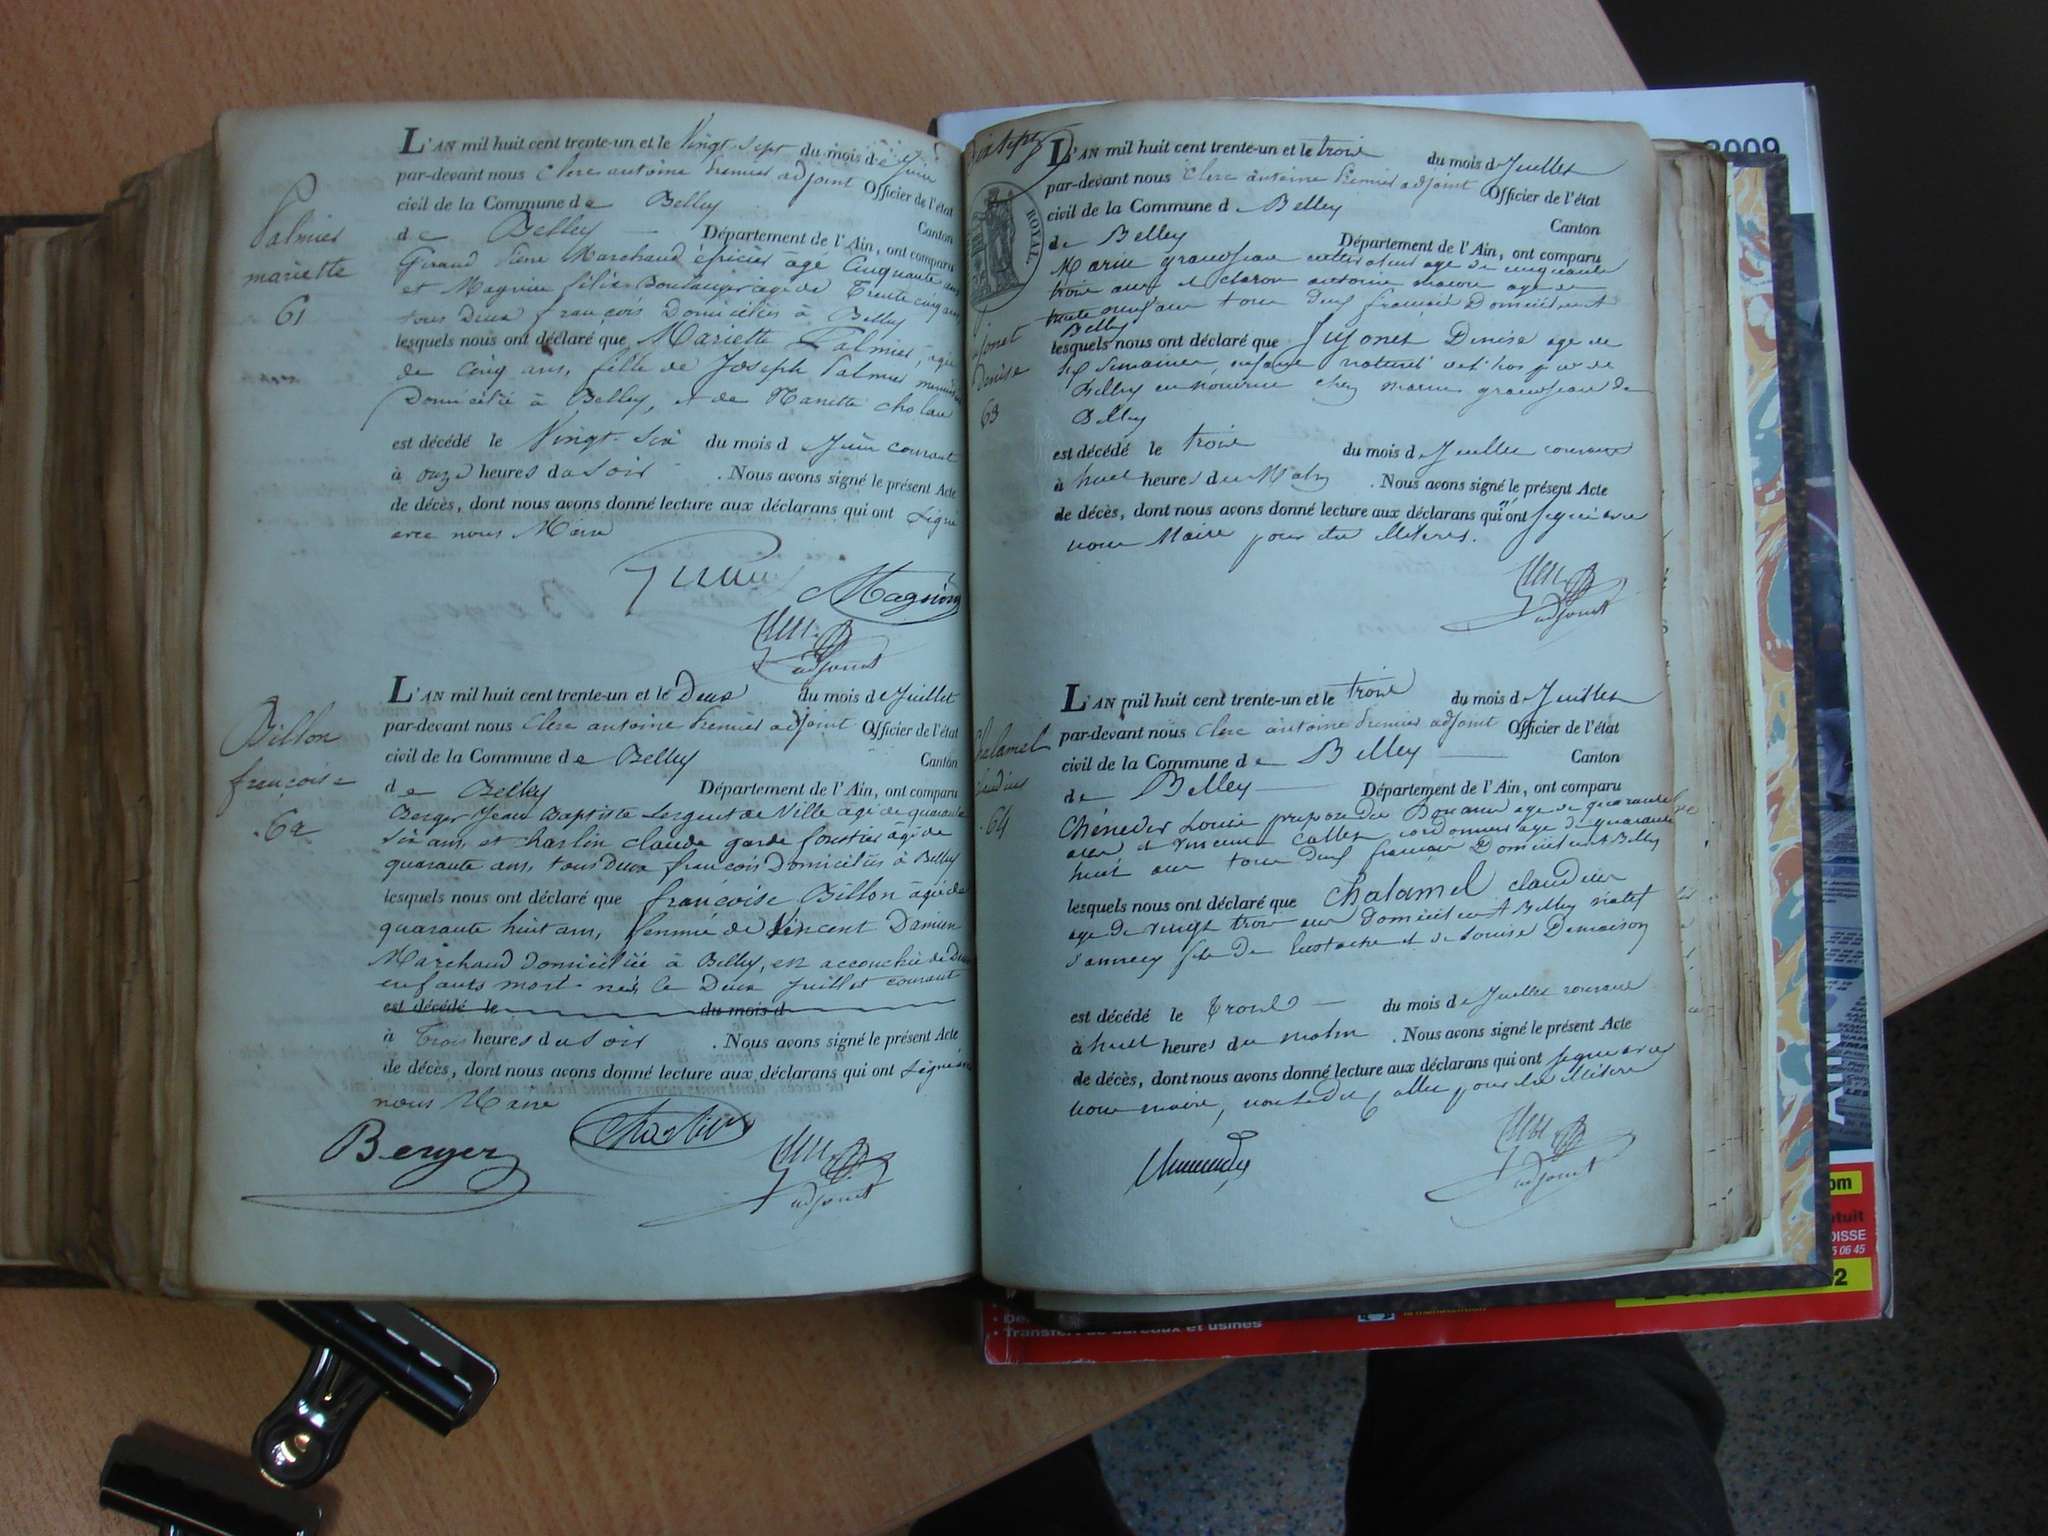 Palmier
mariette
61
L'AN mil huit cent trente-un et le Vingt-sept du mois de Juin
par-devant nous Clerc antoine Premier adjoint Officier de l'état
civil de la Commune de Belley Canton
de Belley Département de l'Ain, ont comparu
Giraud Pierre Marchand épicier âgé Cinquante ans
et Magnin félix Boulanger âgé de Trente cinq ans
tous Deux françois Domiciliés à Belley
lesquels nous ont déclaré que Mariette Palmier, âgée
de Cinq ans, fille de Joseph Palmier menuisier
Domicilié à Belley, et de Mariette
est décédé le Vingt-six du mois d Juin courant
à onze heures du soir . Nous avons signé le présent Acte
de décès, dont nous avons donné lecture aux déclarans qui ont signé
avec nous Maire
Magnin
adjoint
Billon
françoise
62
L'AN mil huit cent trente-un et le Deux du mois de Juillet
par-devant nous Clerc antoine Premier adjoint Officier de l'état
civil de la Commune de Belley Canton
de Belley Département de l'Ain, ont comparu
Berger Jean Baptiste Sergent de Ville âgé de quarante
six ans, et Charlin claude garde forestier âgé de
quarante ans, tous Deux françois Domiciliés à Belley
lesquels nous ont déclaré que françoise Billon âgée de
quarante huit ans, femme de Vincent Damien
Marchand domicilié à Belley, est accouchée de Deux
enfants mort-nés, le Deux Juillet courant
est décédé le du mois d
à Trois heures du soir . Nous avons signé le présent Acte
de décès, dont nous avons donné lecture aux déclarans qui ont signé avec
nous Maire
Berger
Charlin
adjoint
ROYAL
Denise
63
L'AN mil huit cent trente-un et le trois du mois d Juillet
par-devant nous Clerc antoine Premier adjoint Officier de l'état
civil de la Commune de Belley Canton
de Belley Département de l'Ain, ont comparu
Marin grandjean cultivateur age de cinquante
trois ans et claron antoine age de
ans tous deux français Domiciliés A
Belley
lesquels nous ont déclaré que Denise age de
six Semaines, enfant naturel de
Belley en nourrice chez marin grandjean de
Belley
est décédé le trois du mois d Juillet courant
à huit heures du Matin . Nous avons signé le présent Acte
de décès, dont nous avons donné lecture aux déclarans qui n'ont signé avec
nous Maire pour être illiteres.
adjoint
Chalamel
claudius
64
L'AN mil huit cent trente-un et le trois du mois de Juillet
par-devant nous Clerc antoine Premier adjoint Officier de l'état
civil de la Commune de Belley Canton
de Belley Département de l'Ain, ont comparu
Louis age de quarante
ans et vincent Callet cordonnier age de quarante
huit ans tous deux français Domiciliés A Belley
lesquels nous ont déclaré que Chalamel claudius
age de vingt trois ans Domicilié A Belley natif
d'annecy fils de Eustache et de Louise Demaison
est décédé le trois du mois de Juillet courant
à huit heures du matin . Nous avons signé le présent Acte
de décès, dont nous avons donné lecture aux déclarans qui ont signé avec
nous maire, non ledit Callet pour être illitere
adjoint
2009
AIN
om
DISSE
5 06 45
Transfert de bureaux et usines